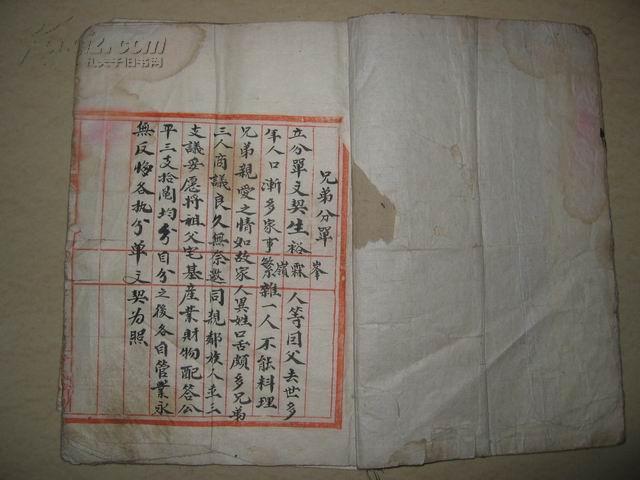 兄弟分單
立分單文契生裕霖峯嶺人等因父去世多
年人口漸多家事繁雜一人不能料理
兄弟親愛之情如故家人異姓口舌頗多兄弟
三人商議良久無奈邀同親鄰族人並三
支議妥愿将祖父宅基産業財物配答公
平三支拾鬮均分自分之後各自管業永
無反悔各执分单文契为照
孔夫子旧书网